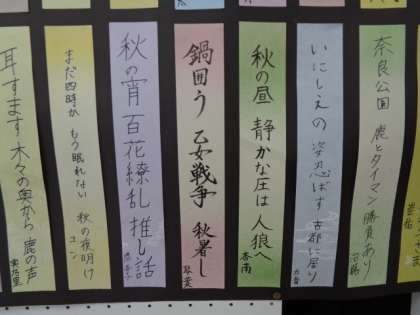 奈良公園 鹿とタイマン勝負あり
いにしえの 姿忍ばす 古都に居り
秋の昼 静かな圧は 人狼へ
杏南
鍋囲う 乙女戦争 秋暑し
琴愛
秋の宵 百花繚乱 推し話
まだ四時か もう眠れない 秋の夜明け
ユン
耳すます 木々の奥から 鹿の声